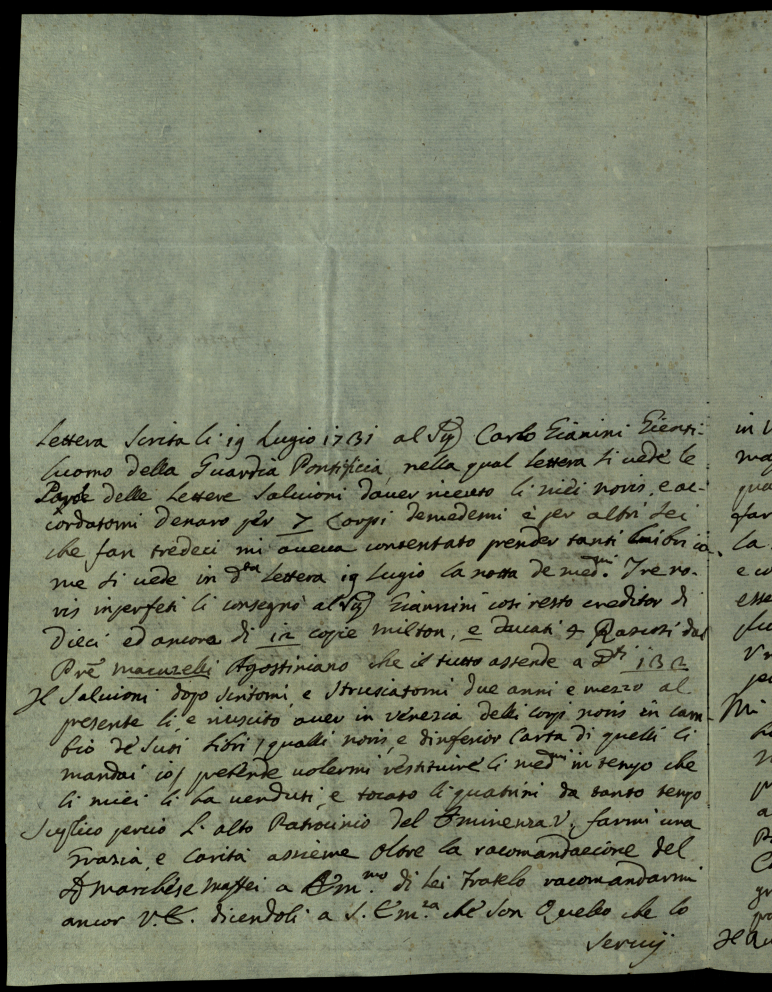 Lettera Scrita li 19 Lugio 1731 al Sig. Carlo Gianini Gienti-
luomo della Guardia Pontificia, nella qual lettera si vede le
delle lettere Salvioni daver riceuto li miei noris, e ac-
cordatomi denaro per 7 Corpi demedemi e per altri sei
che fan tredeci mi aveva contentato prender tanti libri co-
me si vede in d.ta lettera 19 Lugio la notta de med.mi. Tre no-
ris inperfeti li consegnò al Sig. Giannini così resto creditor di
Dieci ed ancora di 12 copie milton, e ducati 4 Rascossi dal
Prē macuzelli Agostiniano che il tutto assende a d.ti 132
Il Salvioni dopo Scritomi, e Strusciatomi due anni e mezzo al
presente li è riuscito aver in venezia delli corpi noris in cam-
bio de Suoi libri / qualli noris, e dinferior Carta di quelli li
mandai io / pretende volermi restituire li med.mi in tempo che
li miei li ha venduti, e tocato li quatrini da tanto tempo
Suplico perciò L'alto Patrocinio del Eminenza V. farmi una
Grazia, e Carità assieme oltre la racomandacione del
Marchese Maffei a Em.mo di lei Fratelo racomandarmi
ancor V.E. dicendoli a S. Em.za che son Quello che lo
servij
in
la
e co
Mi